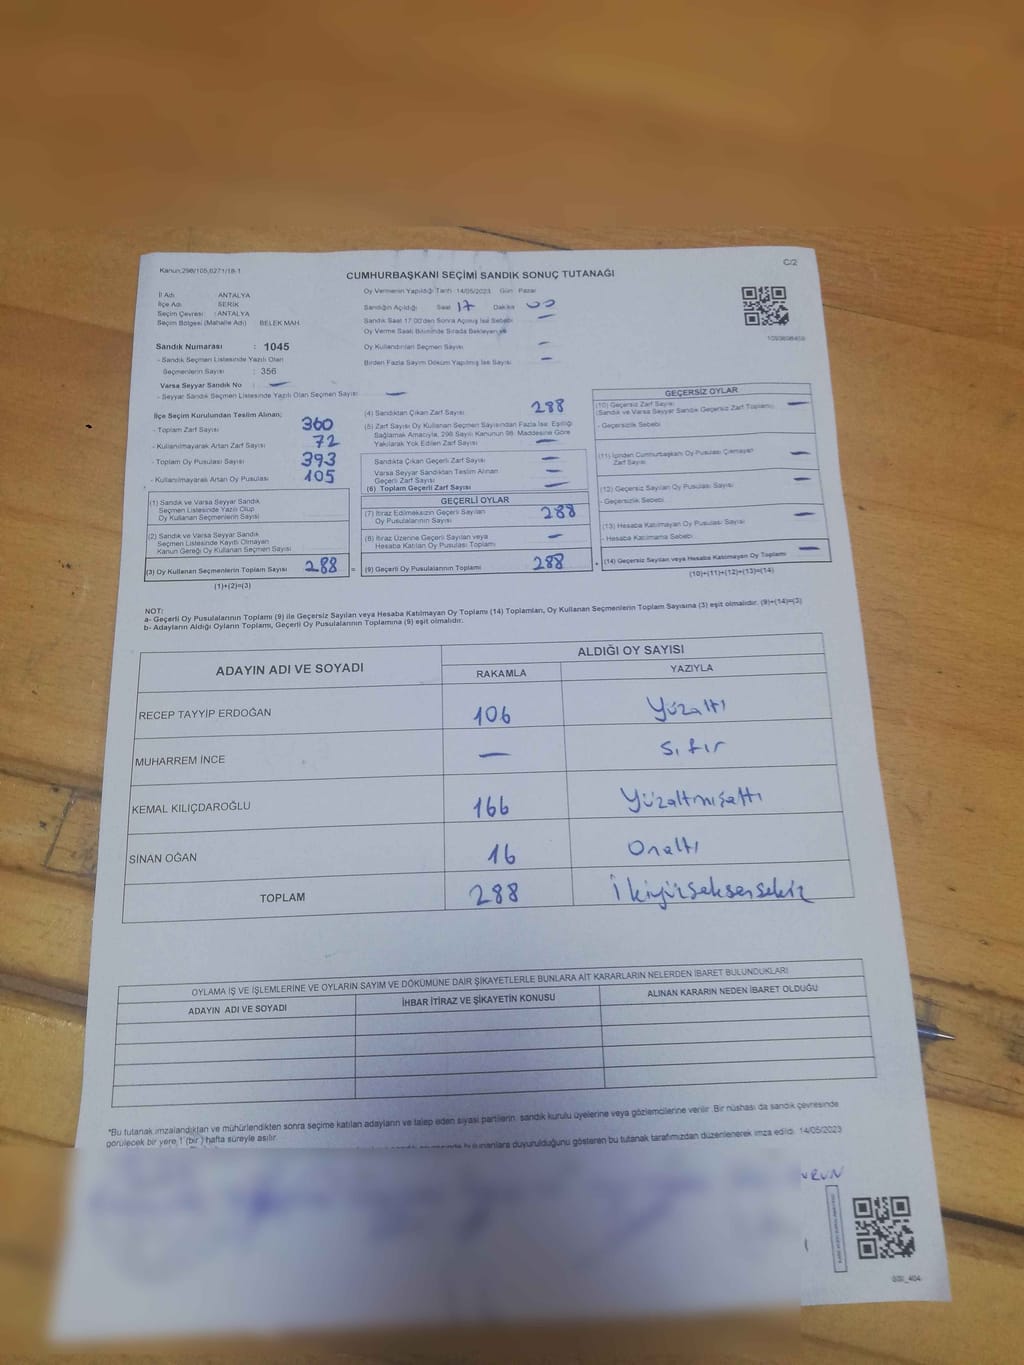 Kanun:298/105,6271/18-1
C/2
CUMHURBAŞKANI SEÇİMİ SANDIK SONUÇ TUTANAĞI
İl Adı ANTALYA
İlçe Adı SERİK
Seçim Çevresi : ANTALYA
Seçim Bölgesi (Mahalle Adı) BELEK MAH.
Oy Vermenin Yapıldığı Tarih :14/05/2023 Gün : Pazar
Sandığın Açıldığı Saat 17 Dakika 00
Sandık Saat 17:00'den Sonra Açılmış İse Sebebi
Oy Verme Saati Bitiminde Sırada Bekleyen ve
Oy Kullandırılan Seçmen Sayısı —
Birden Fazla Sayım Döküm Yapılmış İse Sayısı —
Sandık Numarası : 1045
- Sandık Seçmen Listesinde Yazılı Olan
Seçmenlerin Sayısı : 356
Varsa Seyyar Sandık No : —
- Seyyar Sandık Seçmen Listesinde Yazılı Olan Seçmen Sayısı : —
İlçe Seçim Kurulundan Teslim Alınan;
- Toplam Zarf Sayısı 360
- Kullanılmayarak Artan Zarf Sayısı 72
- Toplam Oy Pusulası Sayısı 393
- Kullanılmayarak Artan Oy Pusulası 105
(1) Sandık ve Varsa Seyyar Sandık
Seçmen Listesinde Yazılı Olup
Oy Kullanan Seçmenlerin Sayısı
(2) Sandık ve Varsa Seyyar Sandık
Seçmen Listesinde Kayıtlı Olmayan
Kanun Gereği Oy Kullanan Seçmen Sayısı
(3) Oy Kullanan Seçmenlerin Toplam Sayısı 288 =
(1)+(2)=(3)
(4) Sandıktan Çıkan Zarf Sayısı 288
(5) Zarf Sayısı Oy Kullanan Seçmen Sayısından Fazla İse; Eşitliği
Sağlamak Amacıyla, 298 Sayılı Kanunun 98. Maddesine Göre
Yakılarak Yok Edilen Zarf Sayısı —
Sandıkta Çıkan Geçerli Zarf Sayısı —
Varsa Seyyar Sandıktan Teslim Alınan
Geçerli Zarf Sayısı —
(6) Toplam Geçerli Zarf Sayısı —
GEÇERLİ OYLAR
(7) İtiraz Edilmeksizin Geçerli Sayılan
Oy Pusulalarının Sayısı 288
(8) İtiraz Üzerine Geçerli Sayılan veya
Hesaba Katılan Oy Pusulası Toplamı —
(9) Geçerli Oy Pusulalarının Toplamı 288 +
GEÇERSİZ OYLAR
(10) Geçersiz Zarf Sayısı
(Sandık ve Varsa Seyyar Sandık Geçersiz Zarf Toplamı) —
- Geçersizlik Sebebi
(11) İçinden Cumhurbaşkanı Oy Pusulası Çıkmayan
Zarf Sayısı —
(12) Geçersiz Sayılan Oy Pusulası Sayısı —
- Geçersizlik Sebebi
(13) Hesaba Katılmayan Oy Pusulası Sayısı —
- Hesaba Katılmama Sebebi
(14) Geçersiz Sayılan veya Hesaba Katılmayan Oy Toplamı —
(10)+(11)+(12)+(13)=(14)
NOT:
a- Geçerli Oy Pusulalarının Toplamı (9) ile Geçersiz Sayılan veya Hesaba Katılmayan Oy Toplamı (14) Toplamları, Oy Kullanan Seçmenlerin Toplam Sayısına (3) eşit olmalıdır. (9)+(14)=(3)
b- Adayların Aldığı Oyların Toplamı, Geçerli Oy Pusulalarının Toplamına (9) eşit olmalıdır.
ADAYIN ADI VE SOYADI
ALDIĞI OY SAYISI
RAKAMLA YAZIYLA
RECEP TAYYİP ERDOĞAN 106 Yüzaltı
MUHARREM İNCE — Sıfır
KEMAL KILIÇDAROĞLU 166 Yüzaltmışaltı
SİNAN OĞAN 16 Onaltı
TOPLAM 288 İkiyüzseksensekiz
OYLAMA İŞ VE İŞLEMLERİNE VE OYLARIN SAYIM VE DÖKÜMÜNE DAİR ŞİKAYETLERLE BUNLARA AİT KARARLARIN NELERDEN İBARET BULUNDUKLARI
ADAYIN ADI VE SOYADI İHBAR İTİRAZ VE ŞİKAYETİN KONUSU ALINAN KARARIN NEDEN İBARET OLDUĞU
*Bu tutanak imzalandıktan ve mühürlendikten sonra seçime katılan adayların ve talep eden siyasi partilerin, sandık kurulu üyelerine veya gözlemcilerine verilir. Bir nüshası da sandık çevresinde
görülecek bir yere 1 (bir) hafta süreyle asılır.
bulunanlara duyurulduğunu gösteren bu tutanak tarafımızdan düzenlenerek imza edildi. 14/05/2023